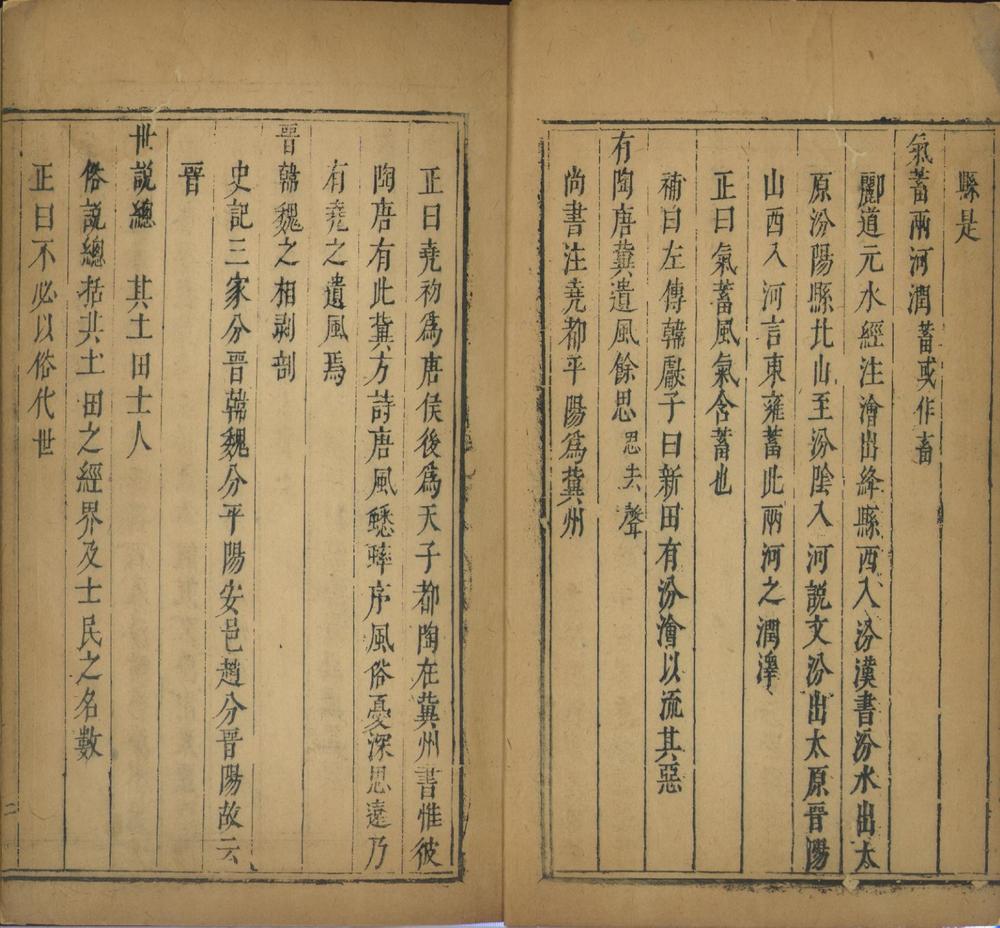 縣是
氣蓄兩河潤蓄或作畜
酈道元水經注澮出絳縣西入汾漢書汾水出太
原汾陽縣北山至汾陰入河説文汾出太原晉陽
山西入河言東雍蓄此兩河之潤澤
正曰氣蓄風氣含蓄也
補曰左傳韓獻子曰新田有汾澮以流其惡
有陶唐冀遺風餘思思去聲
尚書注堯都平陽爲冀州
正曰堯初爲唐侯後爲天子都陶在冀州書惟彼
陶唐有此冀方詩唐風蟋蟀序風俗憂深思遠乃
有堯之遺風焉
晉韓魏之相剥剖
史記三家分晉韓魏分平陽安邑趙分晉陽故云
晉
世説總 其土田士人
俗説總括其土田之經界及士民之名數
正曰不必以俗代世
二